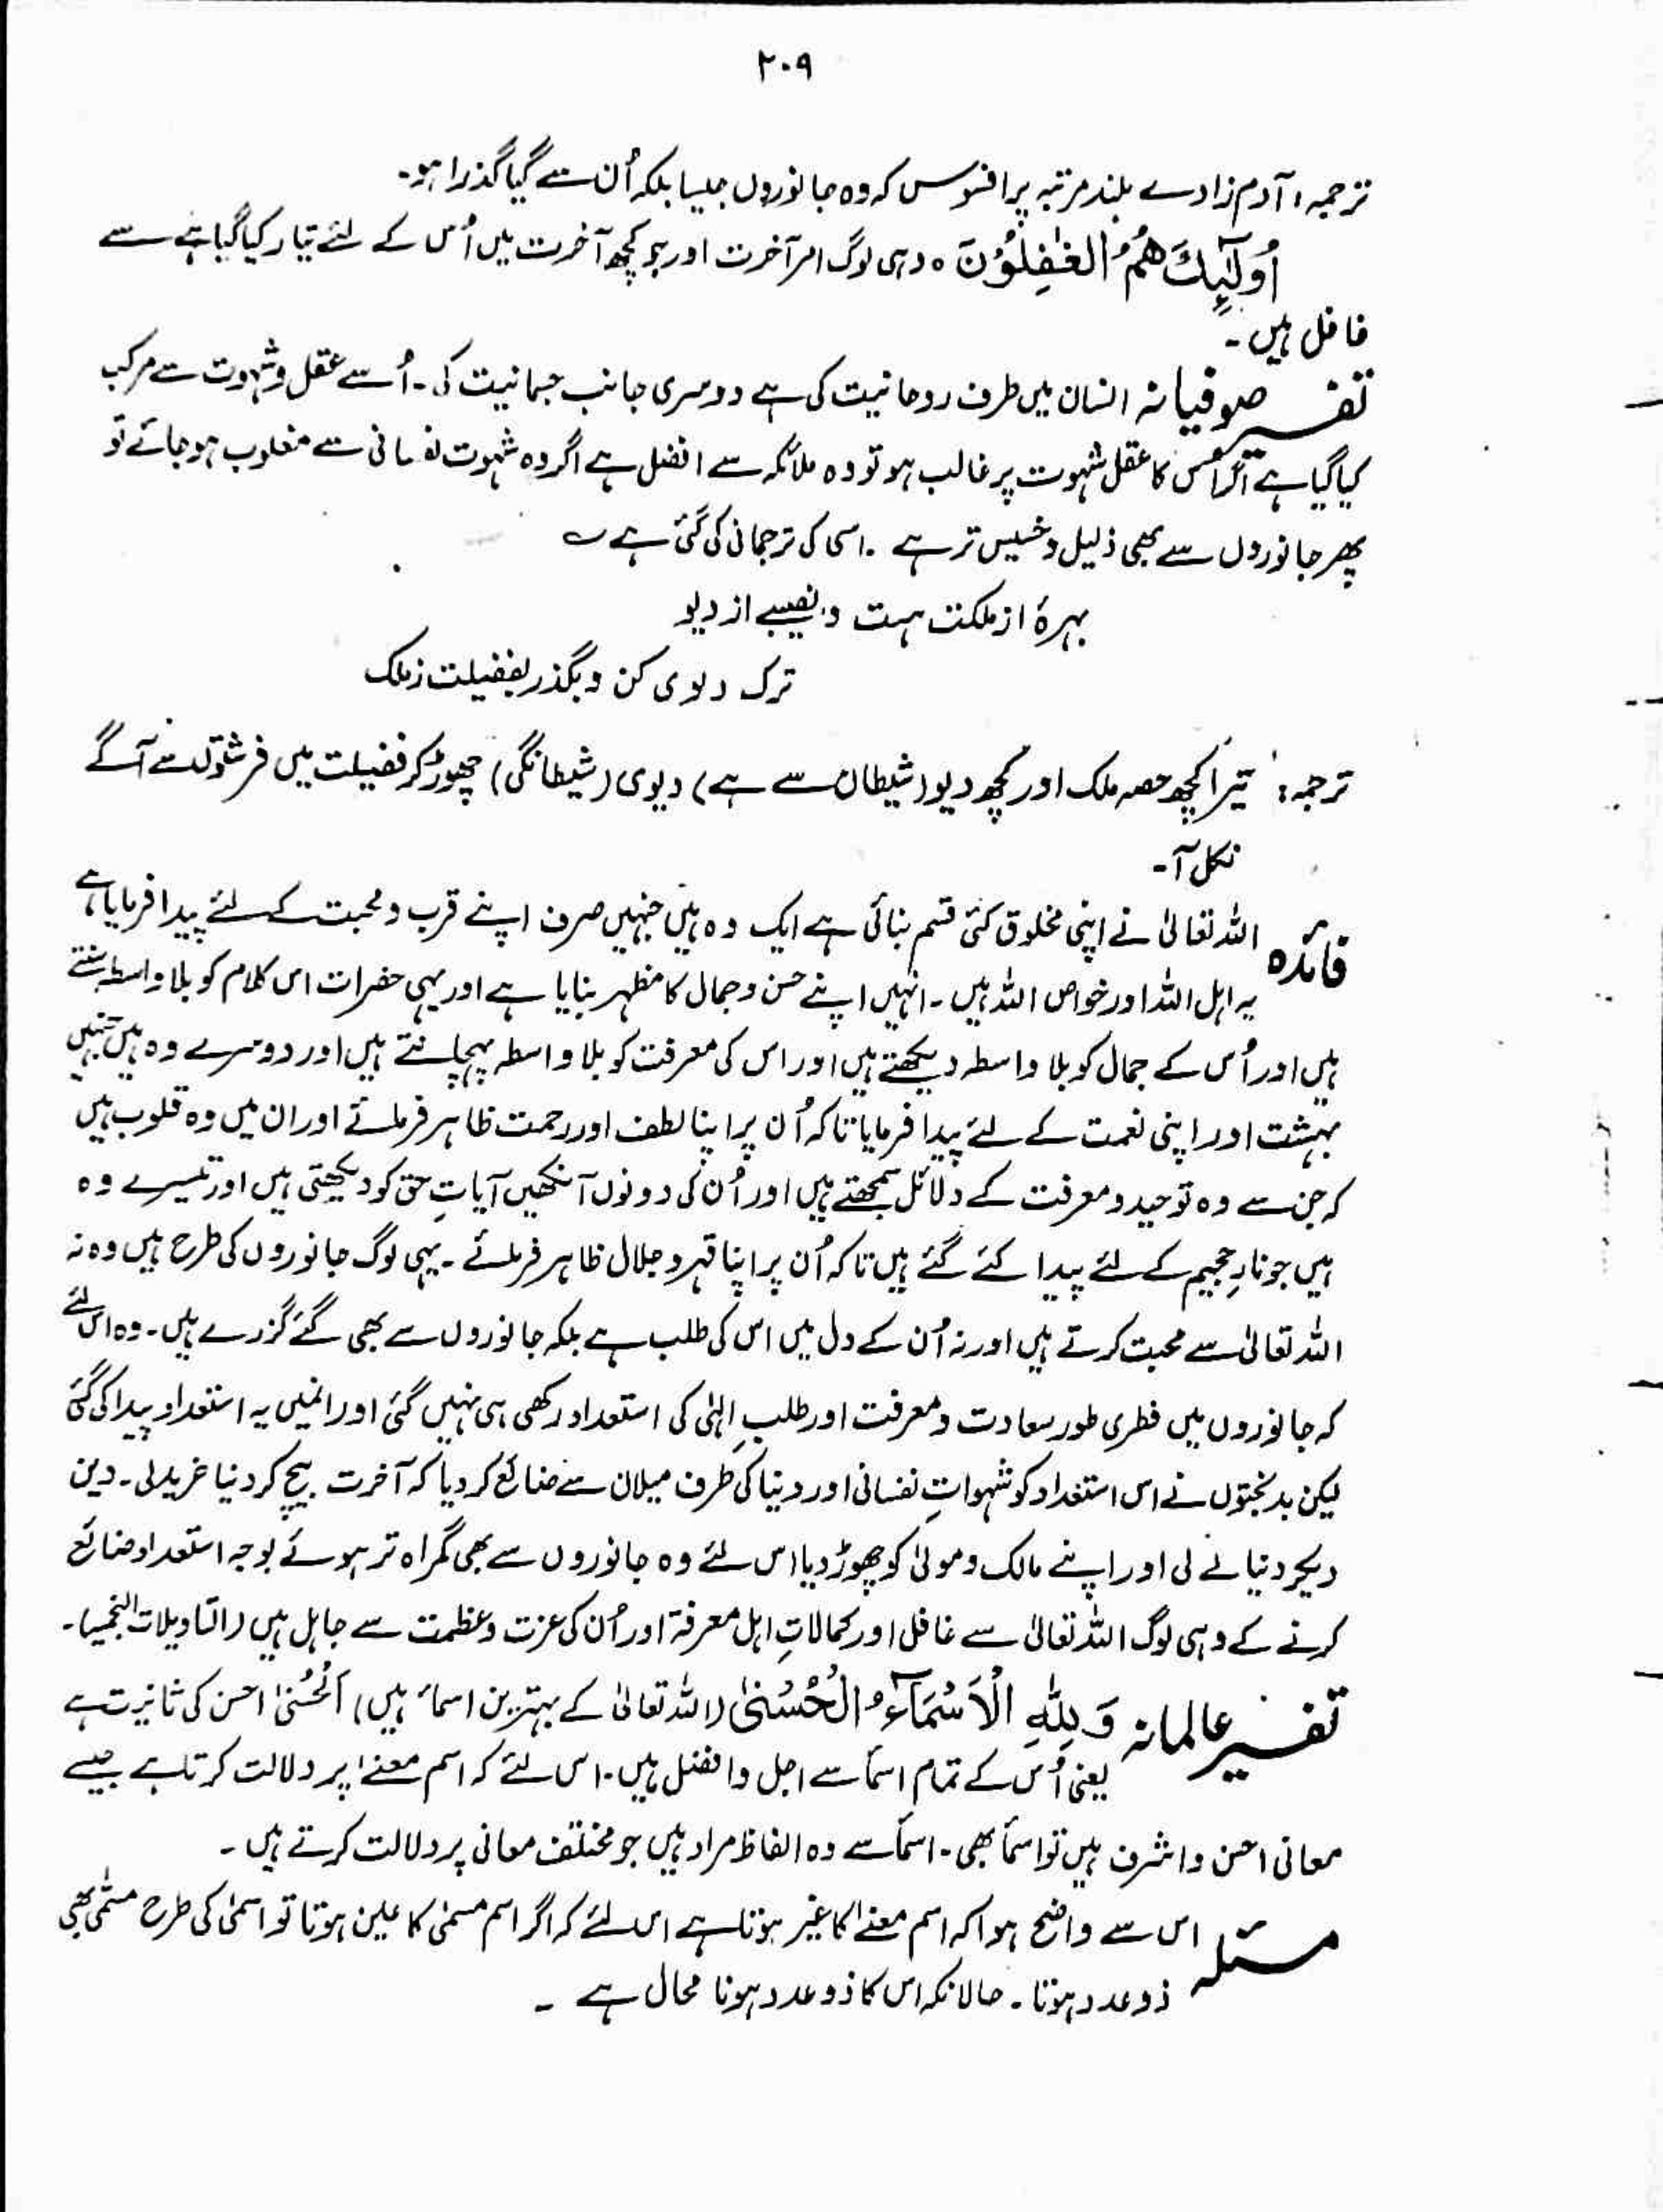 ۲۰۹
ترجمہ: آدم زادے بلند مرتبہ پر افسوس کہ وہ جانوروں جیسا بلکہ اُن سے گیا گذرا ہو۔
اُولٰٓئِکَ ھُمُ الْغٰفِلُوْنَ ہ وہی لوگ امر آخرت اور جو کچھ آخرت میں اُس کے لئے تیار کیا گیا ہے سے
غافل ہیں۔
تفسیر صوفیانہ انسان میں طرف روحانیت کی ہے دوسری جانب جسمانیت کی۔ اُسے عقل و شہوت سے مرکب
کیا گیا ہے اگر اس کا عقل شہوت پر غالب ہو تو وہ ملائکہ سے افضل ہے اگر وہ شہوت نفسانی سے مغلوب ہو جائے تو
پھر جانوروں سے بھی ذلیل و خسیس تر ہے۔ اسی کی ترجمانی کی گئی ہے ؎
بہرۂ از ملکت ہست و نصیبے از دیو
ترک دیوی کن و بگذر بفضیلت ز ملک
ترجمہ: تیرا کچھ حصہ ملک اور کچھ دیو (شیطان سے ہے) دیوی (شیطانگی) چھوڑ کر فضیلت میں فرشتوں سے آگے
نکل آ۔
فائدہ اللہ تعالیٰ نے اپنی مخلوق کئی قسم بنائی ہے ایک وہ ہیں جنہیں صرف اپنے قرب و محبت کے لئے پیدا فرمایا ہے
یہ اہل اللہ اور خواص اللہ ہیں۔ انہیں اپنے حسن و جمال کا مظہر بنایا ہے اور یہی حضرات اس کلام کو بلا واسطہ سنتے
ہیں اور اُس کے جمال کو بلا واسطہ دیکھتے ہیں اور اس کی معرفت کو بلا واسطہ پہچانتے ہیں اور دوسرے وہ ہیں جنہیں
بہشت اور اپنی نعمت کے لئے پیدا فرمایا تاکہ اُن پر اپنا لطف اور رحمت ظاہر فرمائے اور ان میں وہ قلوب ہیں
کہ جن سے وہ توحید و معرفت کے دلائل سمجھتے ہیں اور اُن کی دونوں آنکھیں آیاتِ حق کو دیکھتی ہیں اور تیسرے وہ
ہیں جو نارِ جحیم کے لئے پیدا کئے گئے ہیں تاکہ اُن پر اپنا قہر و جلال ظاہر فرمائے۔ یہی لوگ جانوروں کی طرح ہیں وہ نہ
اللہ تعالیٰ سے محبت کرتے ہیں اور نہ اُن کے دل میں اس کی طلب ہے بلکہ جانوروں سے بھی گئے گزرے ہیں۔ وہ اس لئے
کہ جانوروں میں فطری طور سعادت و معرفت اور طلبِ الٰہی کی استعداد رکھی ہی نہیں گئی اور انہیں یہ استعداد پیدا کی گئی
لیکن بدبختوں نے اس استعداد کو شہواتِ نفسانی اور دنیا کی طرف میلان سے ضائع کر دیا کہ آخرت بیچ کر دنیا خرید لی۔ دین
دیکر دنیا لے لی اور اپنے مالک و مولیٰ کو چھوڑ دیا اس لئے وہ جانوروں سے بھی گمراہ تر ہوئے بوجہ استعداد ضائع
کرنے کے وہی لوگ اللہ تعالیٰ سے غافل اور کمالاتِ اہل معرفۃ اور اُن کی عزت و عظمت سے جاہل ہیں (التاویلات النجمیہ)۔
تفسیر عالمانہ وَ لِلّٰہِ الْاَسْمَآءُ الْحُسْنٰی (اللہ تعالیٰ کے بہترین اسماء ہیں) اَلْحُسْنٰی احسن کی تانیث ہے
یعنی اُس کے تمام اسمأ سے اجل و افضل ہیں۔ اس لئے کہ اسم معنےٰ پر دلالت کرتا ہے جیسے
معانی احسن و اشرف ہیں تو اسمأ بھی۔ اسمأ سے وہ الفاظ مراد ہیں جو مختلف معانی پر دلالت کرتے ہیں۔
مسئلہ اس سے واضح ہوا کہ اسم معنےٰ کا غیر ہوتا ہے اس لئے کہ اگر اسم مسمیٰ کا عین ہوتا تو اسمیٰ کی طرح مسمّٰی بھی
ذو عدد ہوتا۔ حالانکہ اس کا ذو عدد ہونا محال ہے ۔